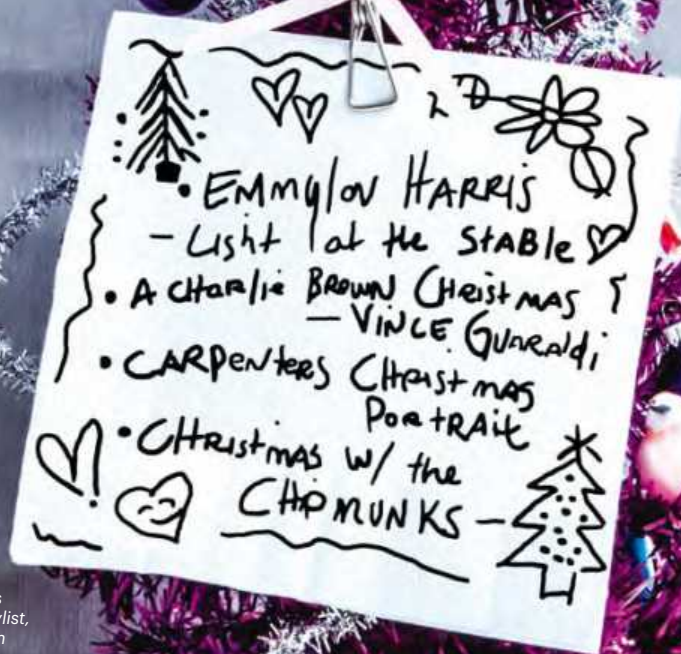 • EMMylov HARRIS
– Light at the StABle
• A CHarlie BROWN CHRistMAS
– VINCE GUARAldi
• CARPENterS CHRistmas
PORtRAit
• CHRistmAS W/ the
CHIPMUNKS –
s
list,
n